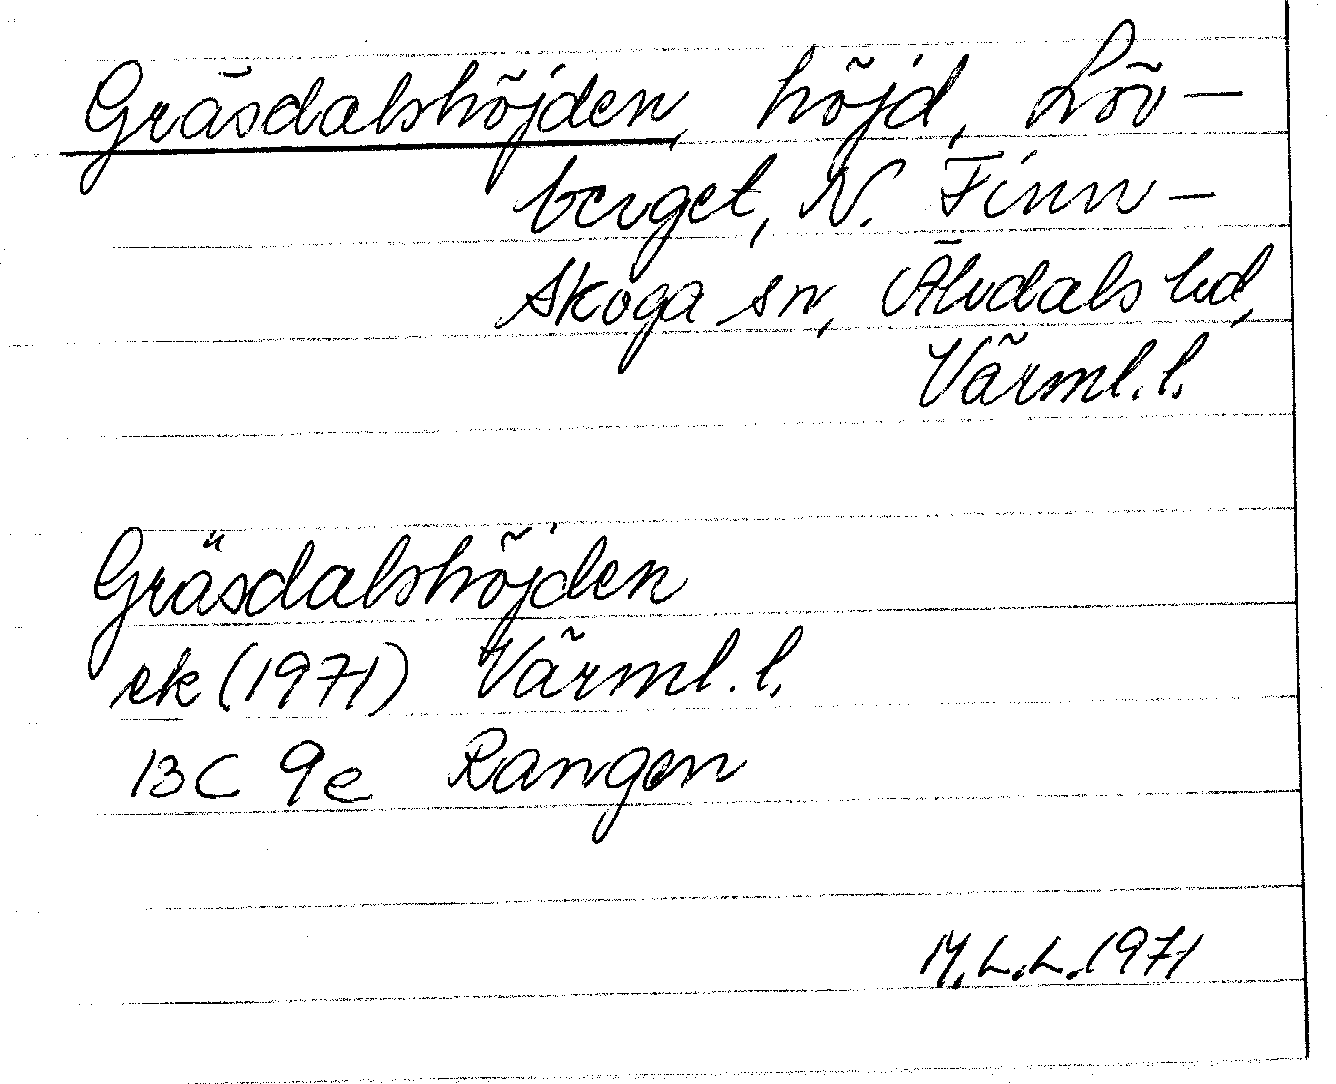 Gräsdalshöjden, höjd, Löv-
berget, N. Finn-
skoga sn, Älvdals hd,
Värml. l.
Gräsdalshöjden
ek (1971) Värml. l.
13C 9e Rangen
M.L.L. 1971